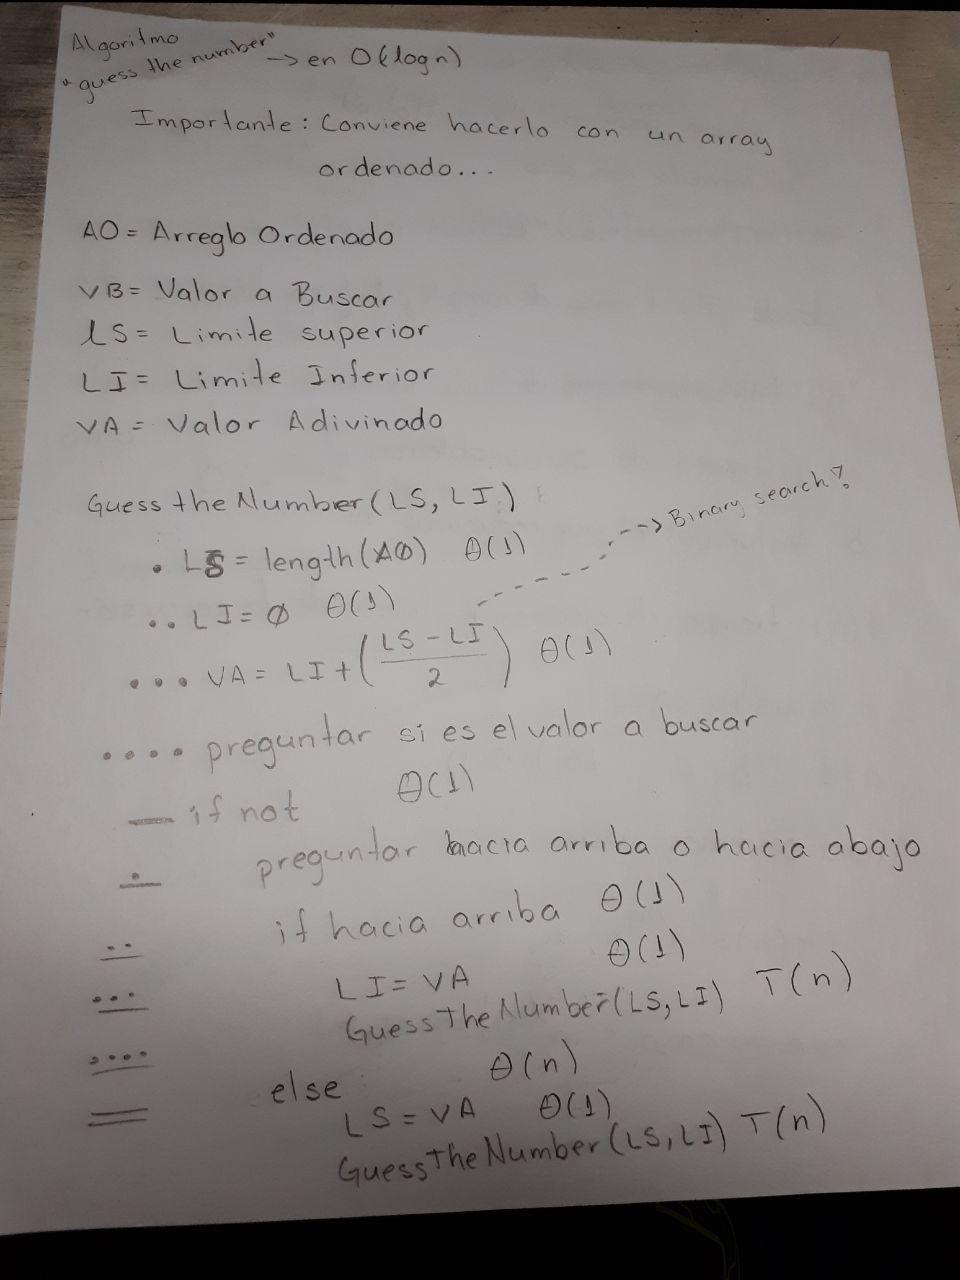 Algoritmo
"guess the number" -> en O(logn)
Importante: Conviene hacerlo con un array
ordenado...
AO = Arreglo Ordenado
VB = Valor a Buscar
LS = Limite superior
LI = Limite Inferior
VA = Valor Adivinado
Guess the Number (LS, LI)
. LS = length(AO) θ(1)
--> Binary search?
.. LI = ∅ θ(1)
... VA = LI + (LS - LI / 2) θ(1)
.... preguntar si es el valor a buscar
— if not θ(1)
preguntar hacia arriba o hacia abajo
if hacia arriba θ(1)
LI = VA θ(1)
GuessTheNumber(LS, LI) T(n)
else θ(n)
LS = VA θ(1)
GuessTheNumber(LS, LI) T(n)